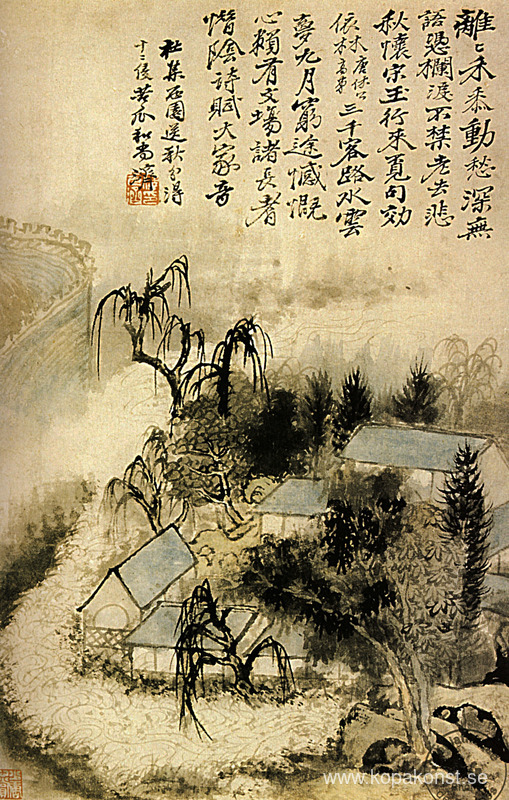 離〻禾黍動愁深無
語憑欄淚不禁老去悲
秋懷宋玉行來覓句効
三千客路水雲
夢九月窮途感慨
心賴有文場諸長者
惜陰詩賦大家音
社集園送秋分得
十二侵苦瓜和尚濟
www.kopakonst.se